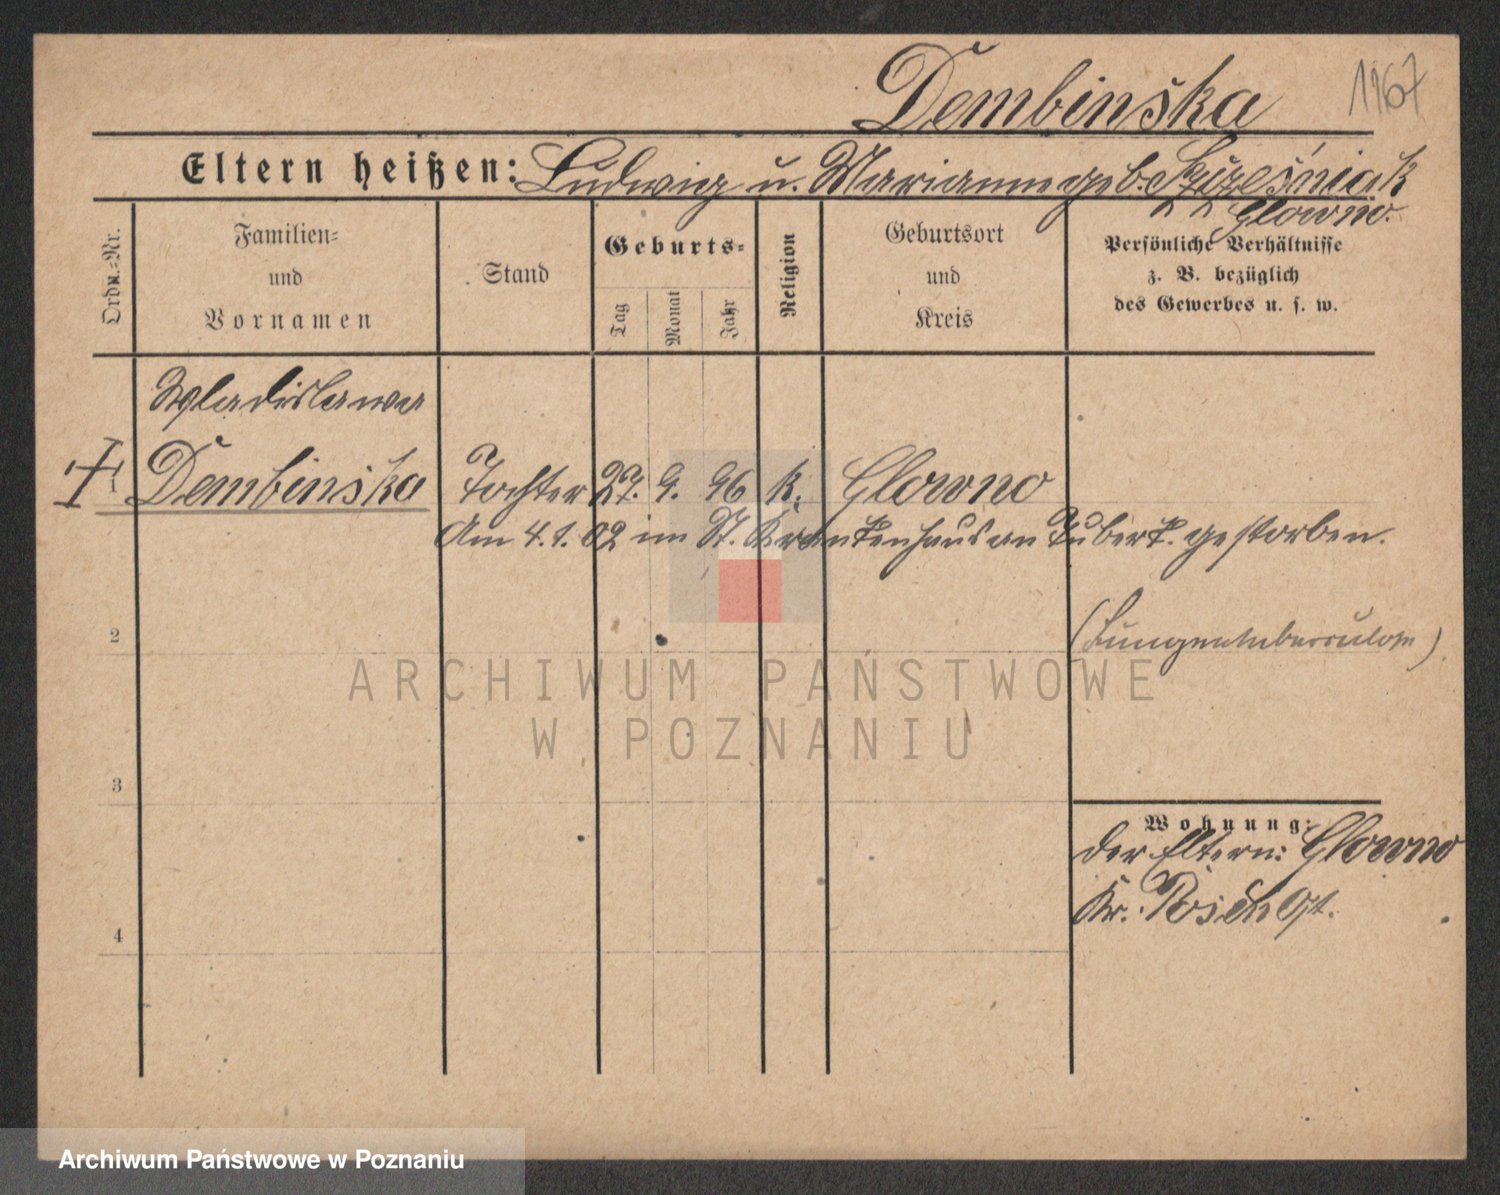 Dembinska
1167
Eltern heißen: Ludwig u. Marianne geb. Szcześniak
Glowno.
Ordn.-Nr.
Familien-
und
Vornamen
Stand
Geburts-
Tag
Monat
Jahr
Religion
Geburtsort
und
Kreis
Persönliche Verhältnisse
z. B. bezüglich
des Gewerbes u. s. w.
Wladislawa
1 Dembinska Tochter 27. 9. 96 k. Glowno
Am 4.1.02 im St. Krankenhaus an Tuberk. gestorben.
2
(Lungentuberculose)
ARCHIWUM PAŃSTWOWE
W POZNANIU
3
Wohnung:
der Eltern: Glowno
Kr. Posen Ost.
4
Archiwum Państwowe w Poznaniu